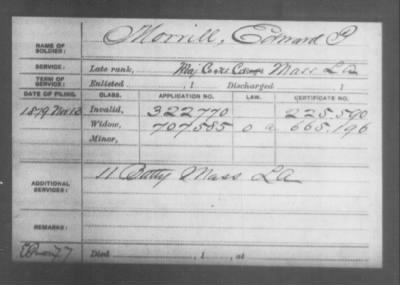 NAME OF SOLDIER: Morrill, Edward P
SERVICE: Late rank, Mass L A
TERM OF SERVICE: Enlisted , 1 Discharged , 1
DATE OF FILING. CLASS. APPLICATION NO. LAW. CERTIFICATE NO.
1879 Nov 18 Invalid, 322770 225.590
Widow, 707585 0 a 665.196
Minor,
ADDITIONAL SERVICES: 11 Batty Mass L A
REMARKS:
Died , 1 , at